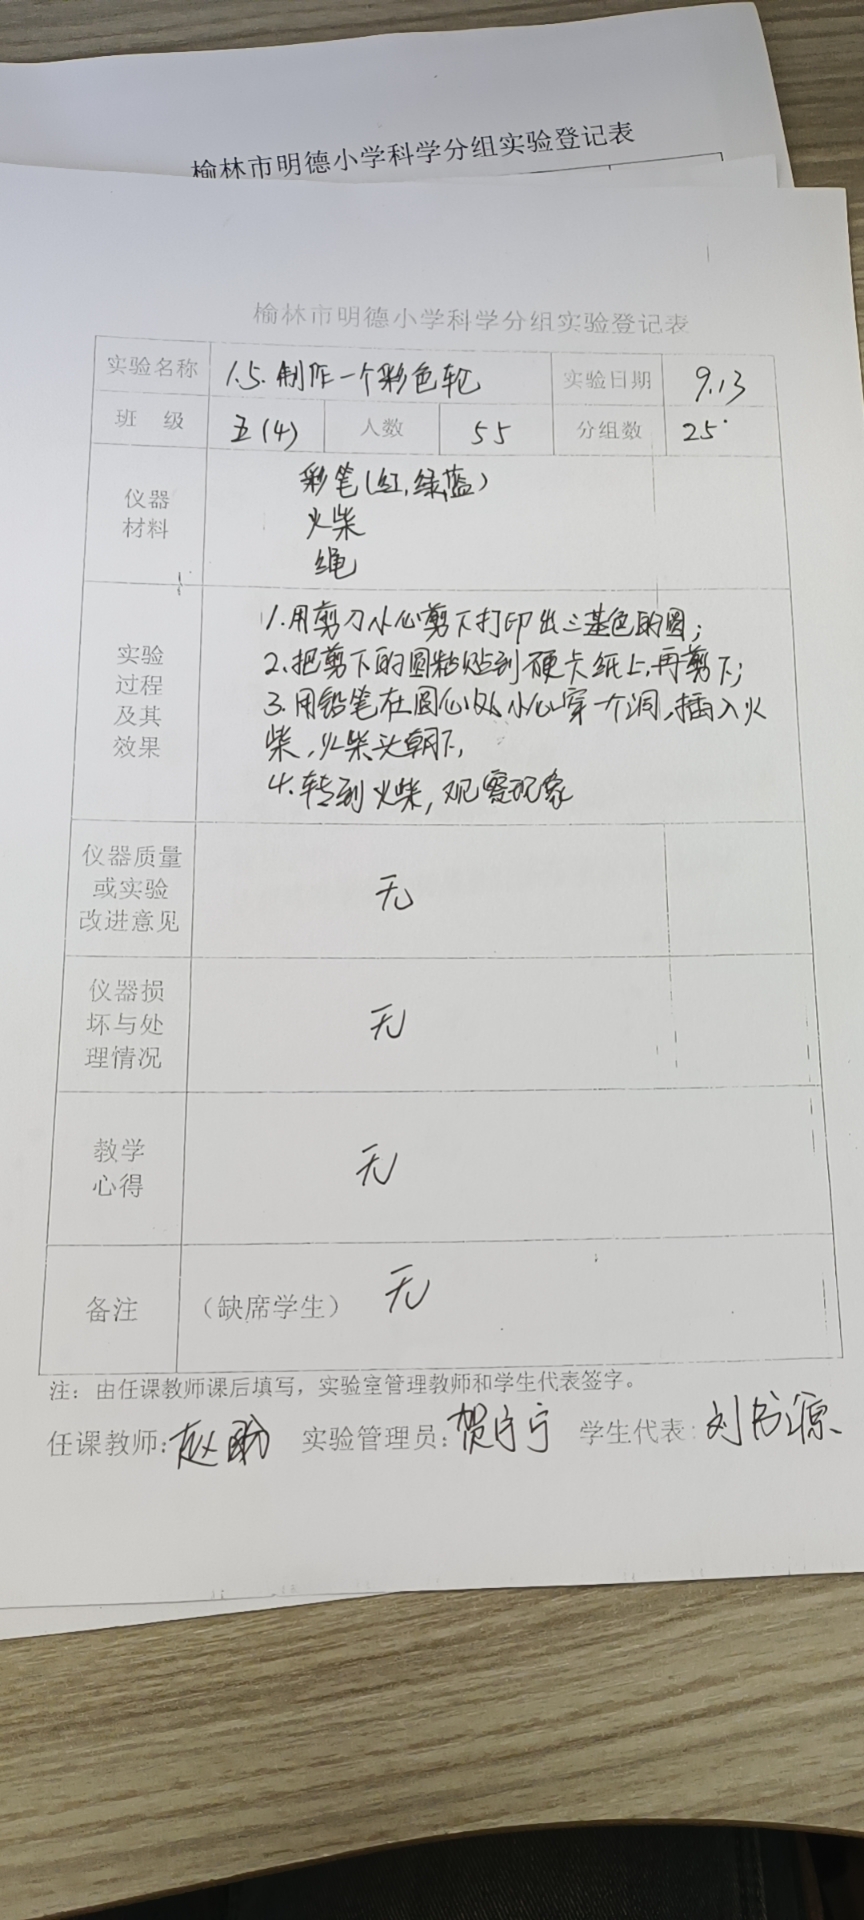 榆林市明德小学科学分组实验登记表
榆林市明德小学科学分组实验登记表
实验名称 1.5.制作一个彩色轮 实验日期 9.13
班 级 五(4) 人数 55 分组数 25
仪器
材料
彩笔(红,绿,蓝)
火柴
绳
实验
过程
及其
效果
1.用剪刀小心剪下打印出三基色的圆;
2.把剪下的圆粘贴到硬卡纸上,再剪下;
3.用铅笔在圆心处小心穿一个洞,插入火
柴,火柴头朝下,
4.转到火柴,观察现象
仪器质量
或实验
改进意见
无
仪器损
坏与处
理情况
无
教学
心得
无
备注 (缺席学生) 无
注：由任课教师课后填写，实验室管理教师和学生代表签字。
任课教师: 赵 实验管理员: 贺宁宁 学生代表: 刘书源